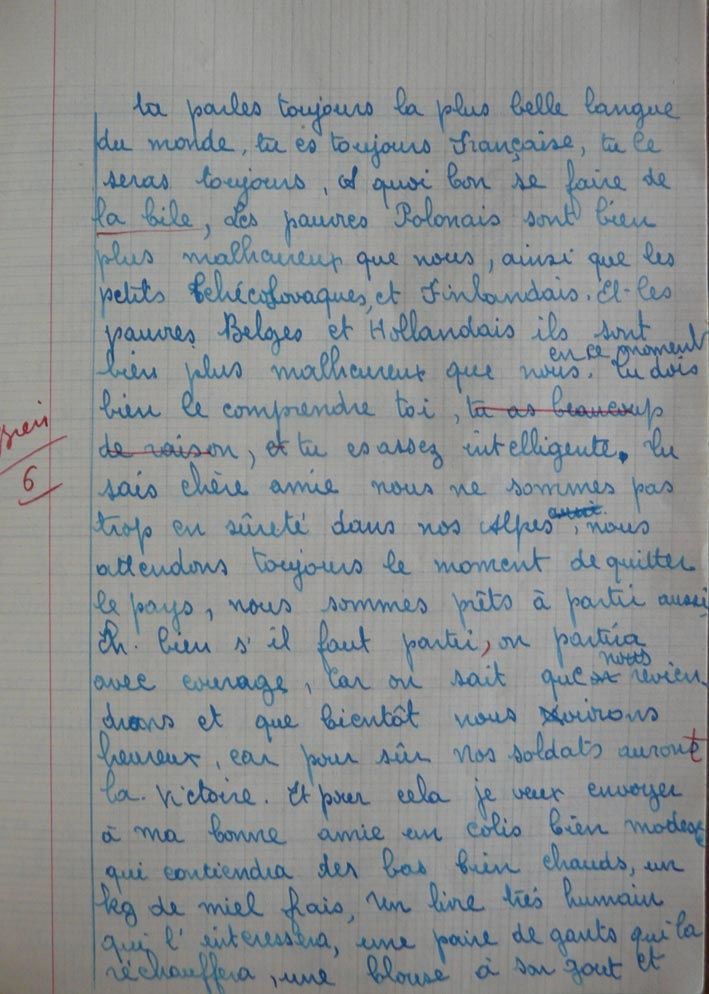 tu parles toujours la plus belle langue
du monde, tu es toujours Française, tu le
seras toujours. A quoi bon se faire de
la bile, Les pauvres Polonais sont bien
plus malheureux que nous, ainsi que les
petits tchécoslovaques, et Finlandais. Et les
pauvres Belges et Hollandais ils sont
en ce moment
bien plus malheureux que nous. Tu dois
bien le comprendre toi, tu as beaucoup
Bien
de raison, et tu es assez intelligente. Tu
6
sais chère amie nous ne sommes pas
trop en sûreté dans nos Alpes, nous
attendons toujours le moment de quitter
le pays, nous sommes prêts à partir aussi
Eh. bien s'il faut partir, on partira
nous
avec courage, car on sait que revien
drons et que bientôt nous vivrons
heureux, car pour sûr nos soldats auront
la victoire. Et pour cela je veux envoyer
à ma bonne amie un colis bien modeste
qui contiendra des bas bien chauds, un
kg de miel frais, un livre très humain
qui l'interessera, une paire de gants qui la
réchauffera, une blouse à son gout et